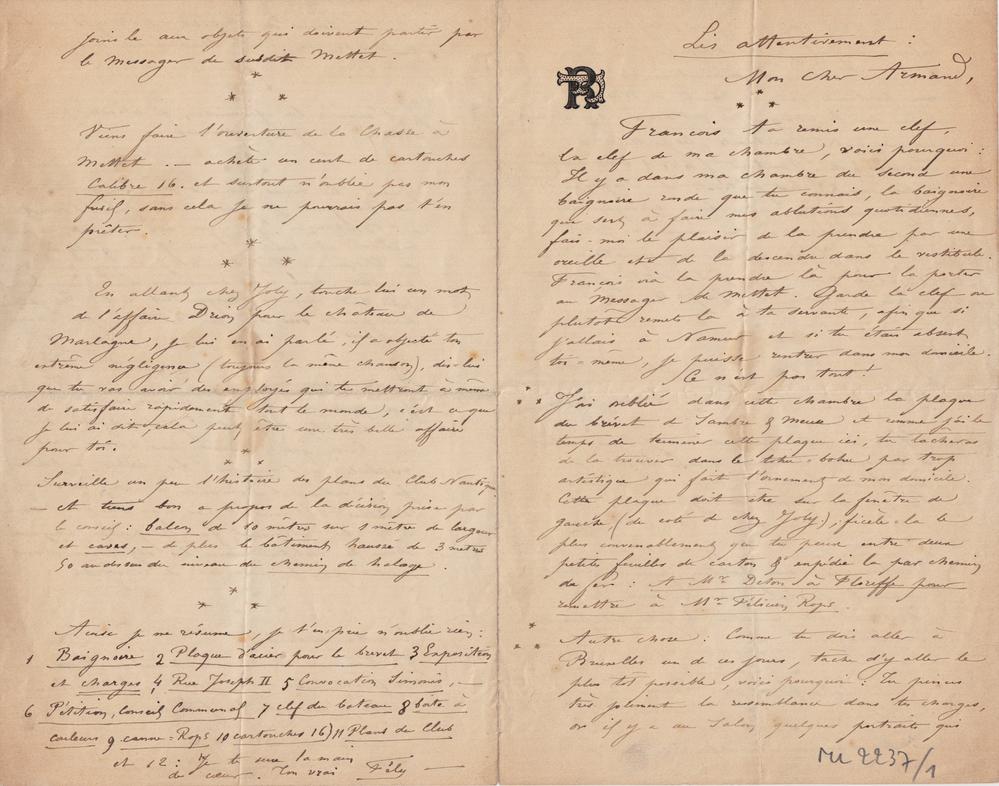 Lis attentivement :
Mon cher Armand,
François t'a remis une clef,
la clef de ma chambre, voici pourquoi :
Il y a dans ma chambre du second une
baignoire ronde que tu connais, la baignoire
qui sert à faire mes ablutions quotidiennes,
fais-moi le plaisir de la prendre par une
oreille et de la descendre dans le vestibule.
François ira la prendre là pour la porter
au Messager de Mettet. Garde la clef ou
plutôt remets la à ta servante, afin que si
j'allais à Namur et si tu étais absent
toi-même, je puisse rentrer dans mon domicile.
Ce n'est pas tout !
J'ai oublié dans cette chambre la plaque
du brevet de Sambre & Meuse et comme j'ai le
temps de terminer cette plaque ici, tu tacheras
de la trouver dans le tohu-bohu par trop
artistique qui fait l'ornement de mon domicile.
Cette plaque doit être sur la fenêtre de
gauche (du coté de chez Joly), ficèle-la le
plus convenablement que tu peux entre deux
petites feuilles de carton & expédie la par chemin
de fer : A Mr Deton à Floreffe pour
remettre à Mr Félicien Rops.
Autre chose : Comme tu dois aller à
Bruxelles un de ces jours, tache d'y aller le
plus tot possible, voici pourquoi : Tu pinces
très joliment la ressemblance dans tes charges,
or il y a au Salon quelques portraits qui
Mu 2237/1
Joins le aux objets qui doivent partir par
le Messager de susdit Mettet.
Viens faire l'ouverture de la Chasse à
Mettet. — achète un cent de cartouches
Calibre 16. et surtout n'oublie pas mon
fusil, sans cela je ne pourrais pas t'en
prêter.
En allant chez Joly, touche lui un mot
de l'affaire Drion pour le château de
Marlagne, je lui en ai parlé, il a objecté ton
extrême négligence (toujours la même chanson), dis-lui
que tu vas avoir des employés qui te mettront à même
de satisfaire rapidement tout le monde, c'est ce que
je lui ai dit, cela peut être une très belle affaire
pour toi.
Surveille un peu l'histoire des plans du Club Nautique
— et tiens bon a propos de la décision prise par
le conseil : balcon de 10 mètres sur 1 mètre de largeur
et caves, — de plus le bâtiment haussé de 3 mètres
50 au dessus du niveau du chemin de halage.
Ainsi je me résume, je t'en prie n'oublie rien :
1 Baignoire 2 Plaque d'acier pour le brevet 3 Exposition
et charges 4 Rue Joseph II 5 Convocation Simonis, —
6 Pétition, Conseil Communal 7 clef du bateau 8 boîte à
couleurs 9 canne-Rops 10 cartouches 16) 11 Plans du Club
et 12 : Je te serre la main
de cœur. Ton vrai Fély —